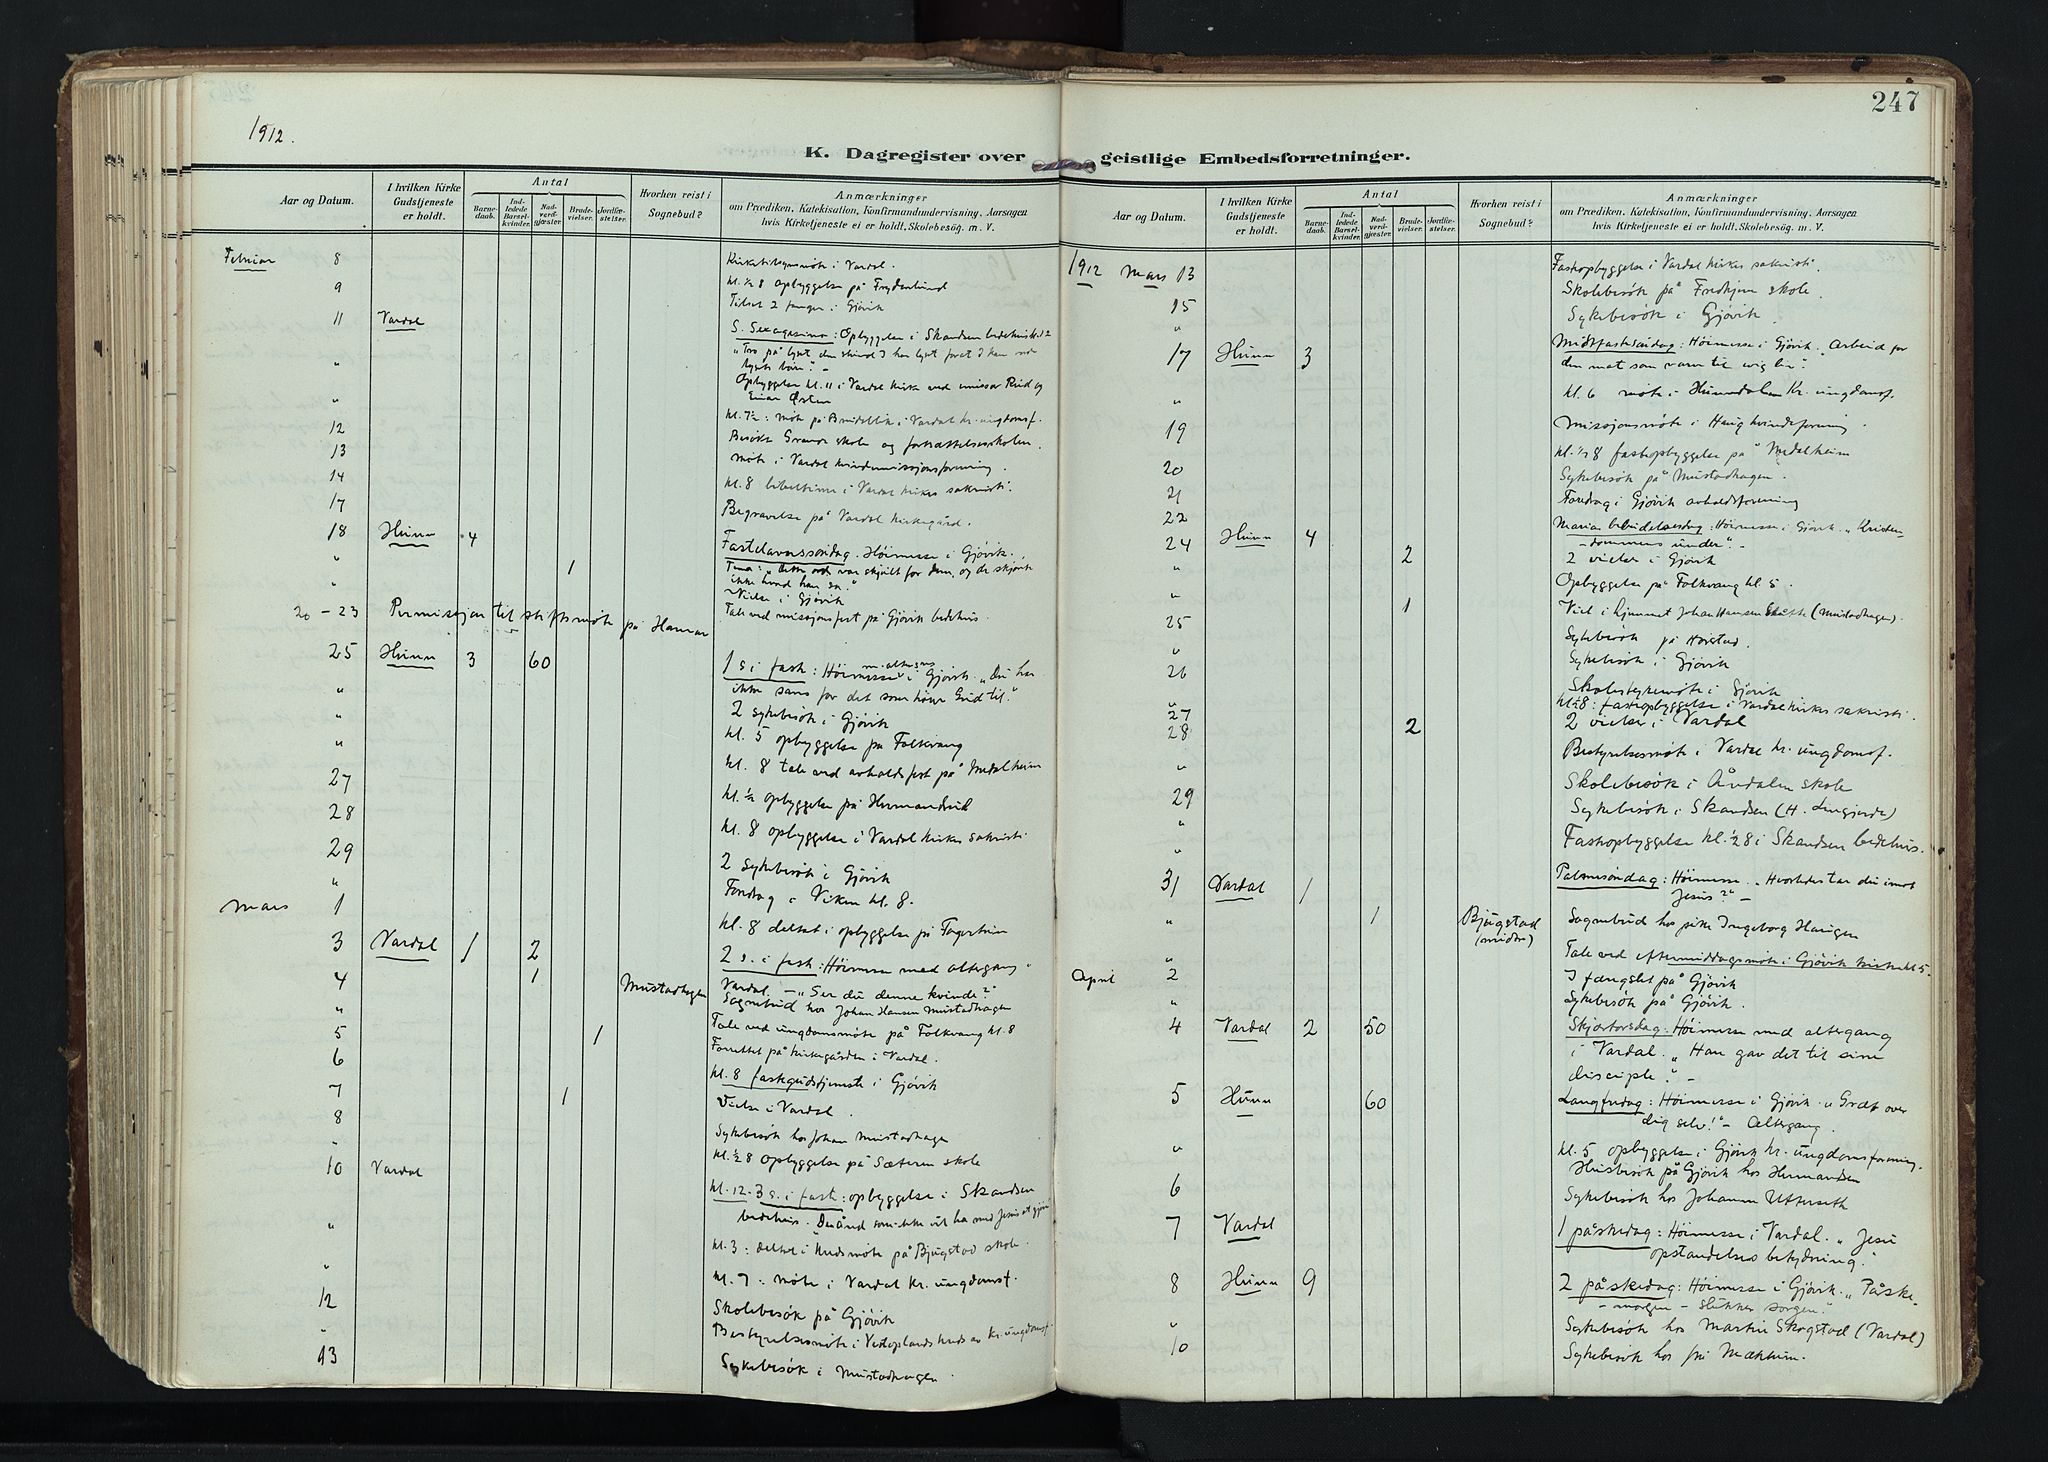 247
1912.
K. Dagregister over geistlige Embedsforretninger.
Aar og Datum.
I hvilken Kirke Gudstjeneste er holdt.
Antal
Barnedaab.
Indledede Barselkvinder.
Nadverdgjæster.
Brudevielser.
Jordfæstelser.
Hvorhen reist i Sognebud?
Anmærkninger
om Prædiken, Katekisation, Konfirmandundervisning, Aarsagen
hvis Kirketjeneste ei er holdt, Skolebesøg, m. V.
Februar 8 møte i Vardal.
9 kl. ½ 8 opbyggelse på Frydenlund
Tilset 2 fanger i Gjövik
11 Vardal S. Sexagesima: Opbyggelse i Skandsen bedehus kl. 12
"Tro på lyset den stund I har lyset foret I kan
lysets börn". –
" Opbyggelse kl. 11 i Vardal kirke ved og
Einar Østen
" kl. 7½: møte på i Vardal kr. ungdomsf.
12 Besökt skole og fortsættelsesskolen.
13 møte i Vardal kvindemissjonsforening.
14 kl. 8 bibeltime i Vardal kirkes sakristi.
17 Begravelse på Vardal kirkegård.
18 Hunn 4 Fastelavnssöndag. Höimesse i Gjövik.
" 1 "dette ord var skjult for dem, og de skjönte
ikke hvad han sa"
" Vielse i Gjövik
Tale ved missjonsfest på Gjövik bedehus.
20 – 23 Permissjon til stiftsmöte på Hamar
25 Hunn 3 60 1 s. i faste: Höimesse m. altergang i Gjövik. "Du har
ikke sans for det som hörer Gud til."
" 2 sykebesök i Gjövik
" kl. 5 opbyggelse på Folkvang
" kl. 8 tale ved avholdsfest på Mdalheim
27 kl. ½ opbyggelse på
28 kl. 8 opbyggelse i Vardal kirkes sakristi
29 2 sykebesök i Gjövik
" Foredrag i Viken kl. 8.
Mars 1 kl. 8 deltat i opbyggelse på Fagerheim
3 Vardal 1 2 2 s. i faste: Höimesse med altergang i
Vardal. – "Ser du denne kvinde?"
4 1 Mustadhagen Sognebud hos Johan Hansen Mustadhagen
" Tale ved ungdomsmöte på Folkvang kl. 8
5 1 Forrettet på kirkegården i Vardal.
6 kl. 8 fastegudstjeneste i Gjövik
7 1 Vielse i Vardal.
8 Sykebesök hos Johan Mustadhagen
" kl. ½ 8 opbyggelse på Sæteren skole
10 Vardal kl. 12. 3 s. i faste: opbyggelse i Skandsen
bedehus. "Den ånd som ikke vil ha med Jesus at gjöre
" kl. 3: deltat i kredsmöte på Bjugstad skole.
" kl. 7: møte i Vardal kr. ungdomsf.
12 Skolebesök på Gjövik
" Bestyrelsesmöte i Vestoplands kreds av kr. ungdomsf.
13 Sykebesök i Mustadhagen.
Aar og Datum.
I hvilken Kirke Gudstjeneste er holdt.
Antal
Barnedaab.
Indledede Barselkvinder.
Nadverdgjæster.
Brudevielser.
Jordfæstelser.
Hvorhen reist i Sognebud?
Anmærkninger
om Prædiken, Katekisation, Konfirmandundervisning, Aarsagen
hvis Kirketjeneste ei er holdt, Skolebesøg, m. V.
1912 Mars 13 Fasteopbyggelse i Vardal kirkes sakristi.
Skolebesök på Fredheim skole.
15 Sykebesök i Gjövik.
"
17 Hunn 3 Midtfastesöndag: Höimesse i Gjövik. "Arbeid for
den mat som varer til evig liv."
" kl. 6 möte i Hunndalen Kr. ungdomsf.
19 Missjonsmöte i Haug kvindeforening.
kl. ½ 8 fasteopbyggelse på Mdalheim
20 Sykebesök på Mustadhagen.
21 Foredrag i Gjövik avholdsforening
22
24 Hunn 4 Marias budskapsdag: Höimesse i Gjövik. "Kristen-
-dommens under". –
" 2 2 vielser i Gjövik
Opbyggelse på Folkvang kl. 5.
" 1 Viet i hjemmet Johan Hansen (Mustadhagen).
25 Sykebesök på
" Sykebesök i Gjövik
26 Skolestyremöte i Gjövik
" 27 kl. ½8: fasteopbyggelse i Vardal kirkes sakristi.
28 2 2 vielser i Vardal
" Bestyrelsesmöte i Vardal kr. ungdomsf.
Skolebesök i Åndalen skole
29 Sykebesök i Skandsen (H. )
"
" Fasteopbyggelse kl. ½8 i Skandsen bedehus.
31 Vardal 1 Palmesöndag: Höimesse. "Hvorledes tar du imot
Jesus?" –
" 1 Bjugstad
(nidre) Sognebud hos pike Ingeborg Haugen
" Tale ved eftermiddagsmöte i Gjövik kirke kl. 5.
April 2 I fængslet på Gjövik
" Sykebesök på Gjövik.
4 Vardal 2 50 Skjærtorsdag: Höimesse med altergang
i Vardal. "Han gav det til sine
disciple." –
5 Hunn 60 Langfredag: Höimesse i Gjövik. "Græt over
dig selv!" – Altergang.
" kl. 5 opbyggelse i Gjövik kr. ungdomsforening.
Husbesök på Gjövik hos Hermansen
6 Sykebesök hos Johanne
7 Vardal 1 påskedag: Höimesse i Vardal. "Jesu
opstandelses betydning."
8 Hunn 9 2 påskedag: Höimesse i Gjövik. "Påske-
-morgen – slukker sorgen."
" Sykebesök hos Martin Skogstad (Vardal)
10 Sykebesök hos